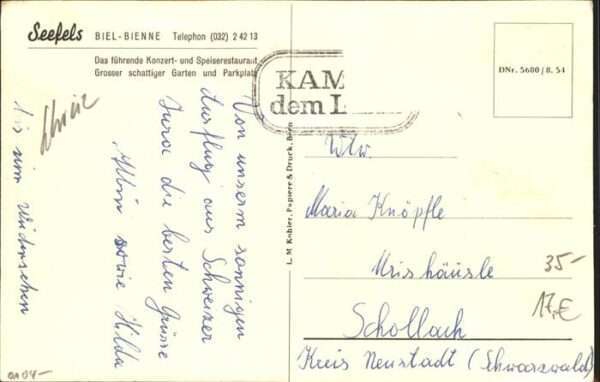 Seefels BIEL-BIENNE Telephon (032) 2 42 13
Das führende Konzert- und Speiserestaurant
Grosser schattiger Garten und Parkplatz
KAM
dem L
DNr. 5680 / 8. 54
L. M. Kohler, Papiere & Druck, Bern
Von unserm sonnigen
Ausflug aus Schweizer
Jura die besten Grüsse
Albin sowie Hilda
Bis zum Wiedersehen
Wtw.
Maria Knöpfle
Urishäusle
Schollach
Kreis Neustadt (Schwarzwald)
35-
17,€